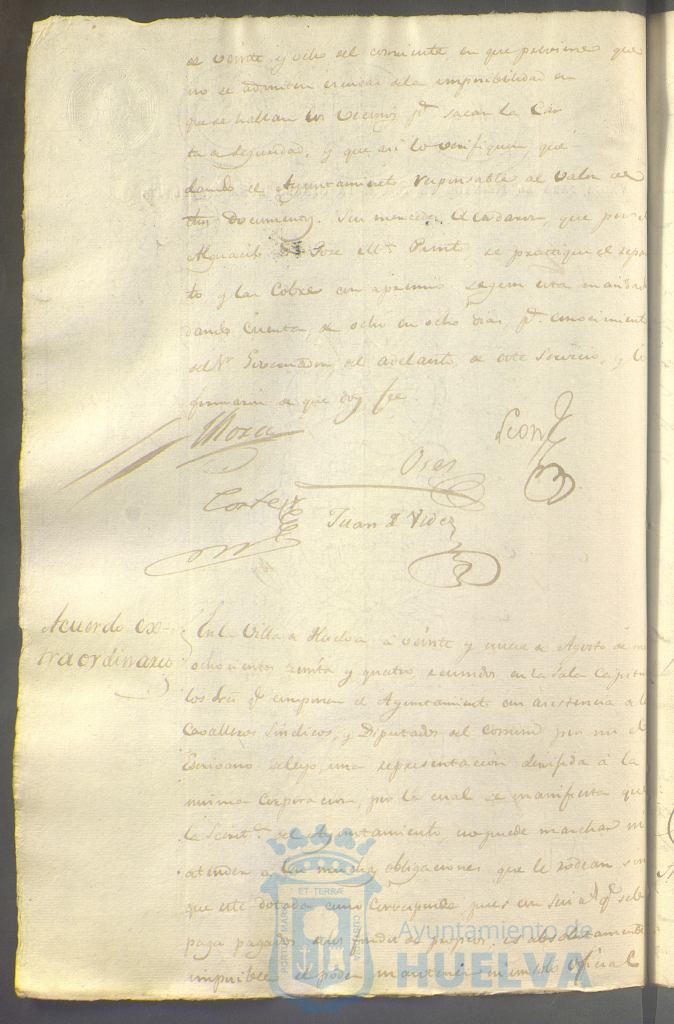 de veinte y ocho del corriente en que previene que
no se admiten excusas de la imposibilidad en
que se hallan los vecinos pª sacar la Car
ta de seguridad, y que asi lo verifiquen, que
dando el Ayuntamiento responsable al valor de
Documentos. Sus mercedes acordaron, que por el
Alguacil Jose Mª se practique el repar
to y las Cobre con apremio segun esta mandado
dando Cuenta, de ocho en ocho dias pª conocimiento
del Sr Governador, del adelanto de este servicio, y lo
firmaron de que doy fe
Mora
Leon
Cortes
Juan
Acuerdo ex-
traordinario
En la Villa de Huelva a veinte y nueve de Agosto de mil
ochocientos treinta y quatro reunidos en la Sala Capitular
los Sres qe componen el Ayuntamiento con asistencia de los
Cavalleros Sindicos, y Diputados del Comun por mi el
Escrivano se leyo una representacion dirijida á la
misma Corporacion, por la cual se manifiesta que
la Secretª del Ayuntamiento no puede marchar ni
atender a las muchas obligaciones que le rodean sin
que este dotada como corresponde pues con
paga pagados de los fondos de propios, es absolutamente
imposible el poder mantener ni un solo Oficial
PORTUS MARIS ET TERRÆ CUSTODIA
Ayuntamiento de
HUELVA